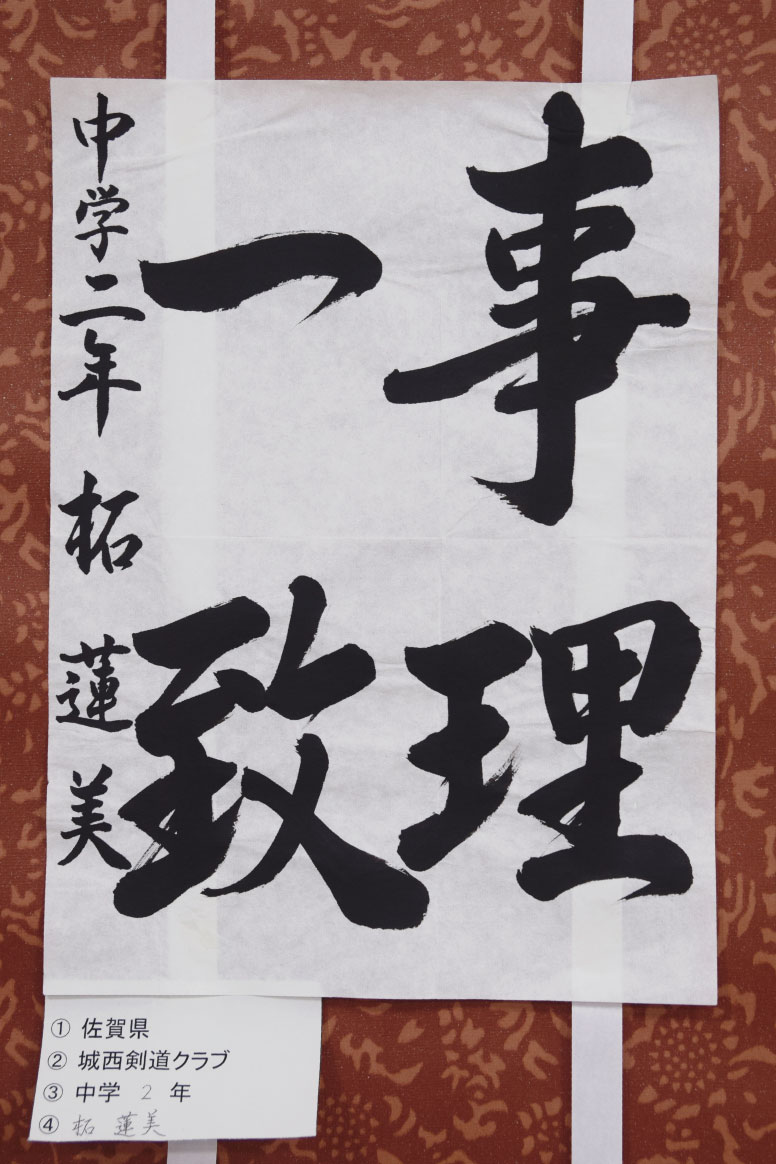 事理
一致
中学二年 柘 蓮美
① 佐賀県
② 城西剣道クラブ
③ 中学 2 年
④ 柘 蓮美